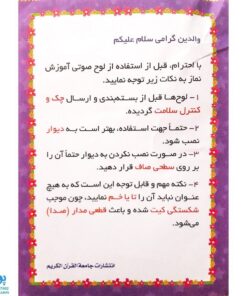 والدین گرامی سلام علیکم
با احترام، قبل از استفاده از لوح صوتی آموزش
نماز به نکات زیر توجه نمایید.
۱- لوح‌ها قبل از بسته‌بندی و ارسال چک و
کنترل سلامت گردیده.
۲- حتماً جهت استفاده، بهتر است به دیوار
نصب شود.
۳- در صورت نصب نکردن به دیوار حتماً آن را
بر روی سطحی صاف قرار دهید.
۴- نکته مهم و قابل توجه این است که به هیچ
عنوان نباید آن را تا یا خم نمایید، چون موجب
شکستگی کیت شده و باعث قطعی مدار (صدا)
می‌شود.
انتشارات جامعة القرآن الکریم